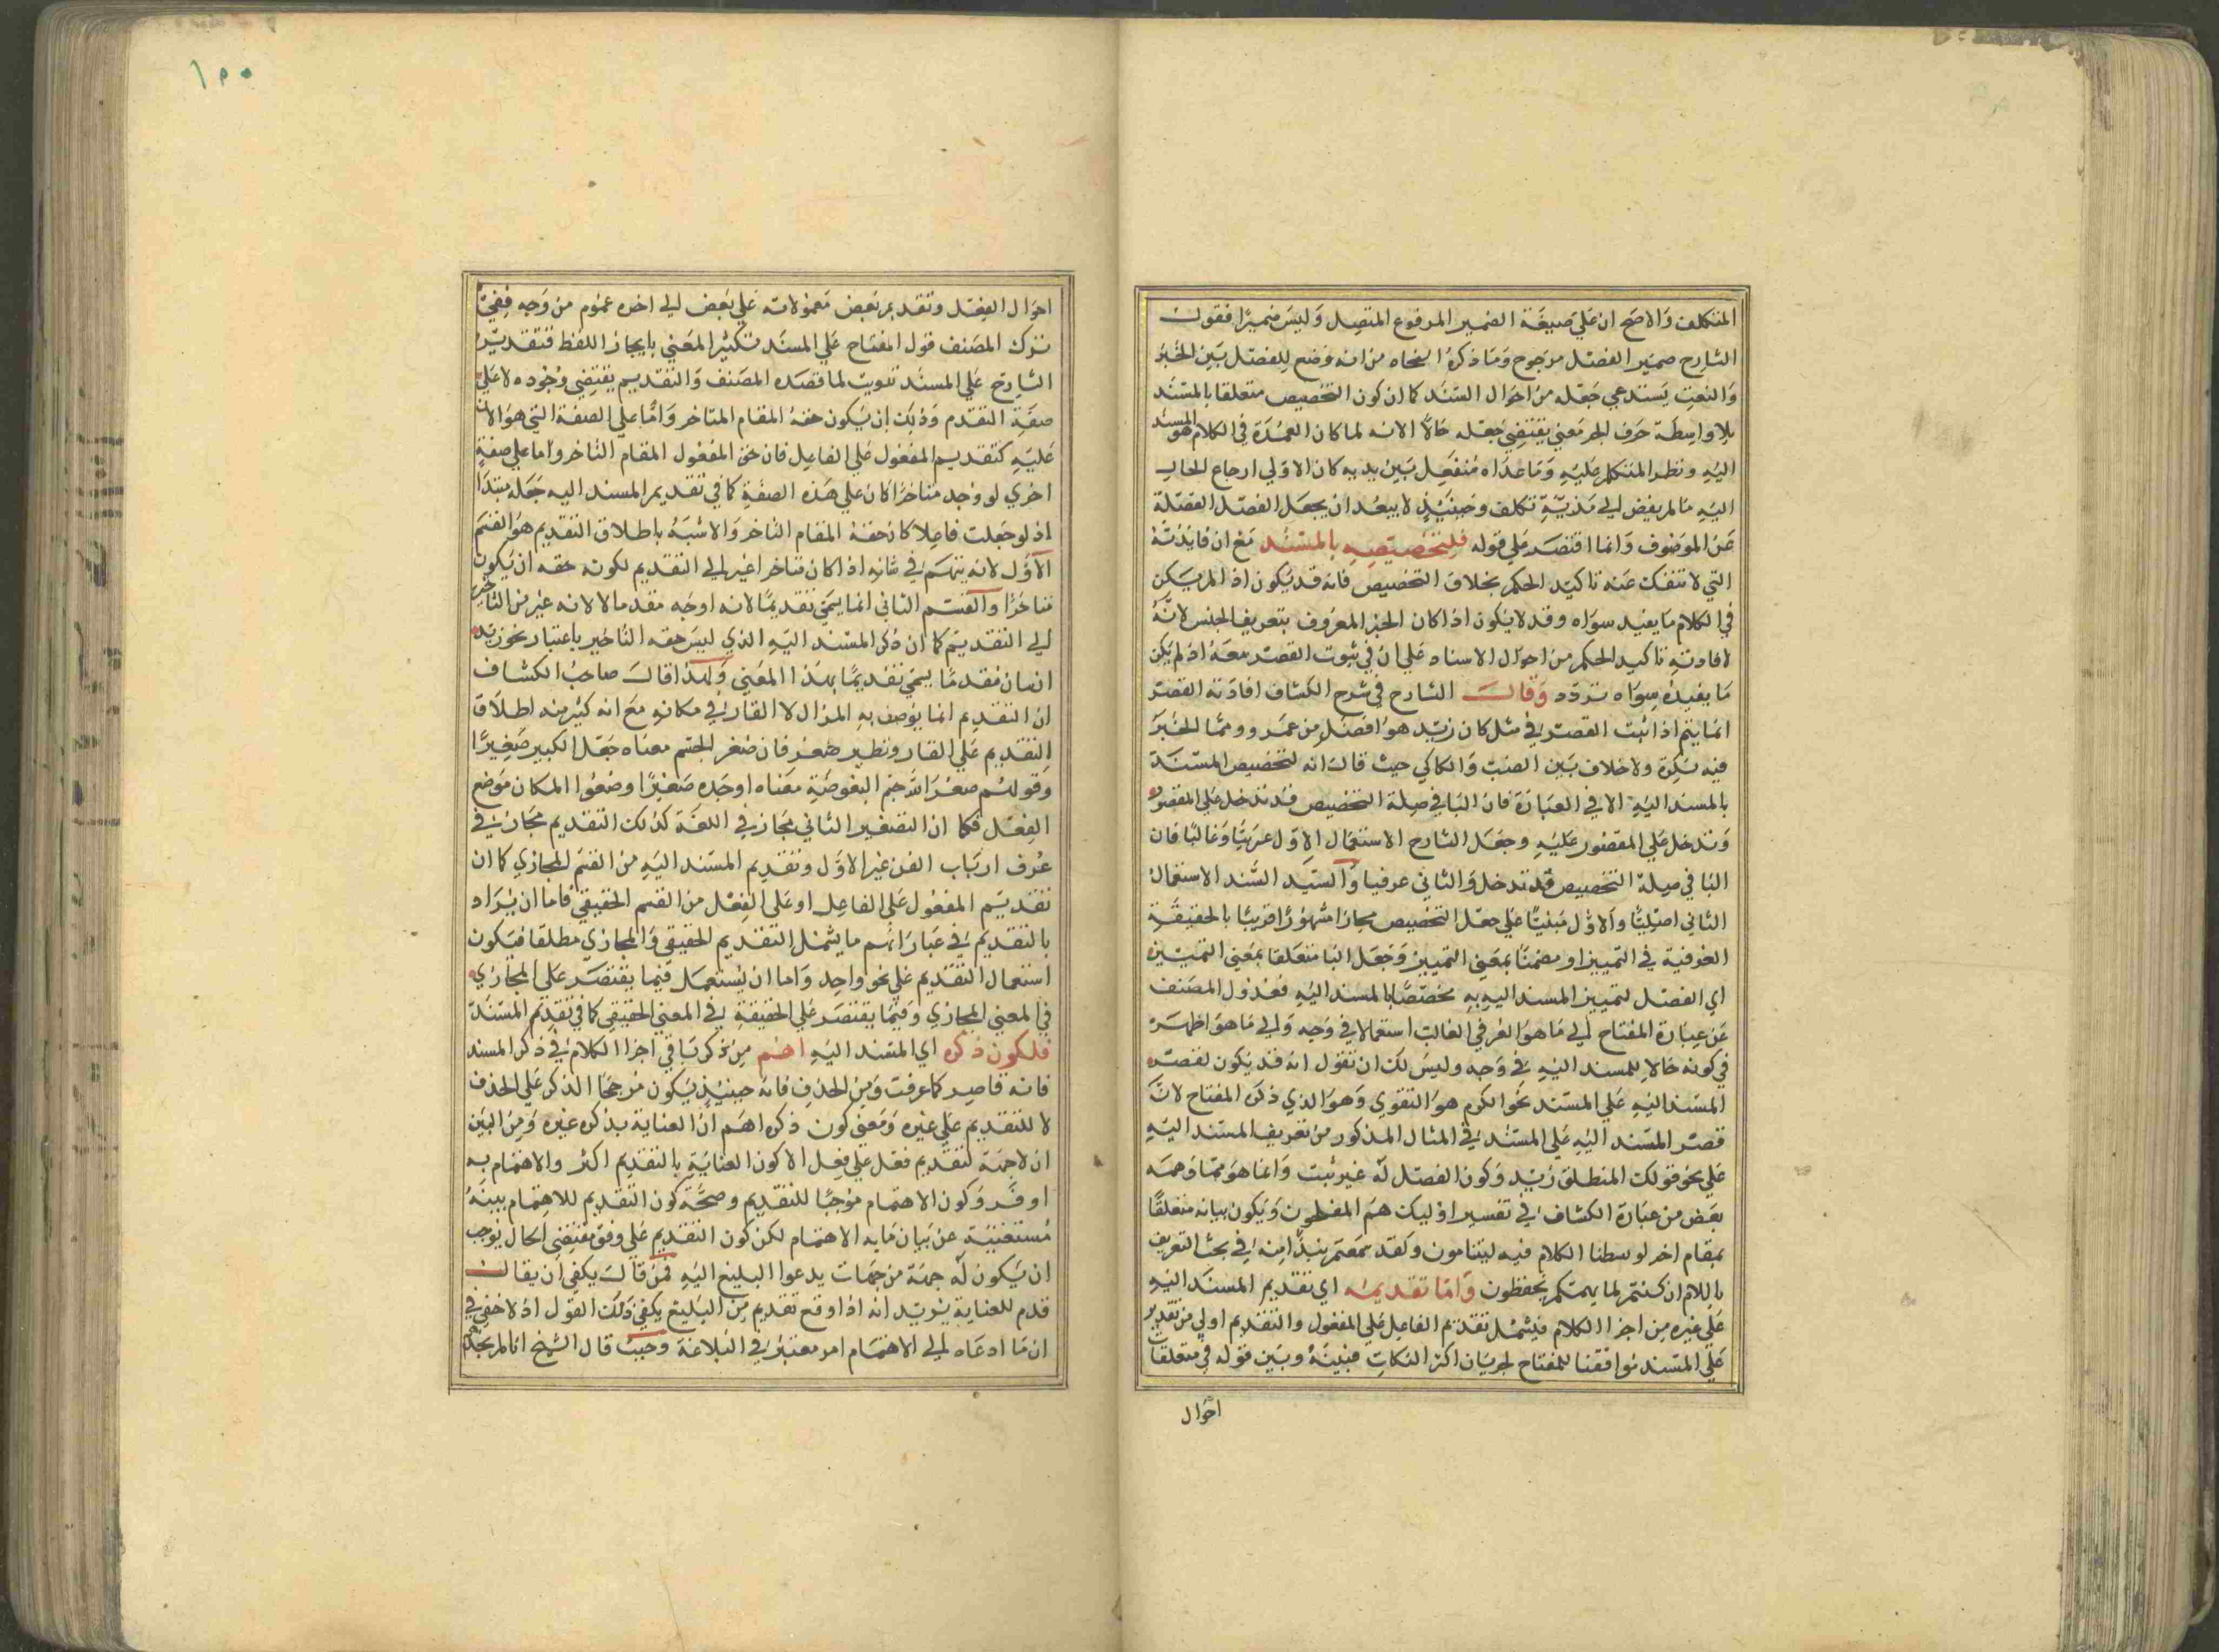 المتكلف والاصح انه علي صيغة الضمير المرفوع المتصل وليس ضميرا فقول
الشارح ضمير الفصل مرجوح وما ذكره النحاه من انه وضع للفصل بين الخبر
والنعت يستدعي جعله من احوال المسند كما ان كون التخصيص متعلقا بالمسند
بلا واسطة حرف الجر معني يقتضي جعله حالا الا انه لما كان العمدة في الكلام هو المسند
اليه ونظر المتكلم عليه وما عداه منفعل بين يديه كان الاولي ارجاع الحال
اليه ما لم يفض الي مذية تكلف وحينئذ لا يبعد ان يجعل الفصل الفصلة
عن الموصوف وانما اقتصر علي قوله فلتخصيصه بالمسند مع ان فايدته
التي لا تنفك عنه تاكيد الحكم بخلاف التخصيص فانه قد يكون اذا لم يكن
في الكلام ما يفيد سواه وقد لا يكون اذا كان الخبر المعروف بتعريف الجنس لانه
لافادته تاكيد الحكم من احوال الاسناد علي ان في ثبوت القصر معه اذ لم يكن
ما يفيده سواه تردد وقال الشارح في شرح الكشاف افادته القصر
انما يتم اذا ثبت القصر في مثل كان زيد هو افضل من عمرو ومما الخبر
فيه نكرة ولا خلاف بين المصنف والسكاكي حيث قال انه لتخصيص المسند
بالمسند اليه الا في العبارة فان البا في صلة التخصيص قد تدخل علي المقصور
وتدخل علي المقصور عليه وجعل الشارح الاستعمال الاول عربيا وغالبا فان
البا في صلة التخصيص قد تدخل والثاني عرفيا والسيد السند الاستعمال
الثاني اصليا والاول مبنيا علي جعل التخصيص مجازا مشهورا قريبا بالحقيقة
العرفية في التمييز او مضمنا بمعني التمييز وجعل البا متعلقا بمعني التمييز
اي الفصل لتمييز المسند اليه به مختصا بالمسند اليه فعدول المصنف
عن عبارة المفتاح الي ما هو العرفي الغالب استعمالا في وجه والي ما هو اظهر
في كونه حالا للمسند اليه في وجه وليس لك ان تقول انه قد يكون لقصر
المسند اليه علي المسند نحو الكرم هو التقوي وهو الذي ذكره المفتاح لان
قصر المسند اليه علي المسند في المثال المذكور من تعريف المسند اليه
علي نحو قولك المنطلق زيد وكون الفصل له غير ثبت وانما هو مما وهمه
بعض من عبارة الكشاف في تفسير اوليك هم المفلحون ويكون بيانه متعلقا
بمقام اخر لو سطنا الكلام فيه ليتنامون وكقد سمعتم بنذا منه في بحث التعريف
باللام ان كنتم لما يهمتكم تحفظون واما تقديمه اي تقديم المسند اليه
علي غيره من اجزا الكلام فيشمل تقديم الفاعل علي المفعول والتقديم اولي من تقدير
علي المسند موافقا للمفتاح لجريان اكثر النكات فيه وبين قوله في متعلقات
احوال
١٠٠
احوال الفعل وتقديم بعض معمولاته علي بعض الي اخره عموم من وجه ففي
ترك المصنف قول المفتاح علي المسند تكثير المعني بايجاز اللفظ فتقدير
الشارح علي المسند تفويت لما قصده المصنف والتقديم يقتضي وجوده لا علي
صفة التقدم وذلك ان يكون حقه المقام المتاخر واما علي الصفة التي هو الان
عليه كتقديم المفعول علي الفاعل فان حق المفعول المقام التاخر واما علي صفة
اخري لو وجد متاخرا كان علي هذه الصفة كما في تقديم المسند اليه جعله مبتدا
اذ لو جعلت فاعلا كان حقه المقام التاخر والاشبه باطلاق التقديم هو القسم
الاول لانه يتهم في شانه اذا كان متاخرا غير الي التقديم لكونه حقه ان يكون
متاخرا والقسم الثاني انما يسمي تقديما لانه اوجه مقدما لا لانه غير من التاخير
الي التقديم كما ان ذكر المسند اليه الذي ليس حقه التاخير باعتبار نحو زيد
انسان مقدما يسمي تقديما بهذا المعني ولهذا قال صاحب الكشاف
ان التقديم انما يوصف به المزال لا القار في مكانه مع انه كثير منه اطلاق
التقديم علي القار ونظير صغر فان صغر الجسم معناه جعل الكبير صغيرا
وقولهم صغر الله جسم البعوضة معناه اوجده صغيرا وضعوا المكان موضع
الفعل فكما ان التصغير الثاني مجاز في اللغة كذلك التقديم مجاز في
عرف ارباب الفن غير الاول وتقديم المسند اليه من القسم المجازي كما ان
تقديم المفعول علي الفاعل او علي الفعل من القسم الحقيقي فاما ان يراد
بالتقديم في عباراتهم ما يشمل التقديم الحقيقي والمجازي مطلقا فيكون
استعمال التقديم علي نحو واحد واما ان يستعمل فيما يقتصر علي المجازي
في المعني المجازي وفيما يقتصر علي الحقيقة في المعني الحقيقي كما في تقديم المسند
فلكون ذكره اي المسند اليه اهم من ذكر باقي اجزا الكلام في ذكر المسند
فانه قاصر كما عرفت ومن الحذف فانه حينئذ يكون مرجحا الذكر علي الحذف
لا للتقديم علي غيره ومعني كون ذكره اهم ان العناية بذكره غيره ومن البين
ان لا جهة لتقديم فعل علي فعل الا كون العناية بالتقديم اكثر والاهتمام به
اوفر وكون الاهتمام موجبا للتقديم وصحة كون التقديم للاهتمام بينة
مستغنية عن بيان ما به الاهتمام لكن كون التقديم علي وفق مقتضي الحال يوجب
ان يكون له جهة من جهات يدعوا البليغ اليه فمن قال يكفي ان يقال
قدم للعناية يريد انه اذا وقع تقديم من البليغ يكفي ذلك القول اذ لا خفي في
ان ما ادعاه الي الاهتمام امر معتبر في البلاغة وحيث قال الشيخ انا لم نجد